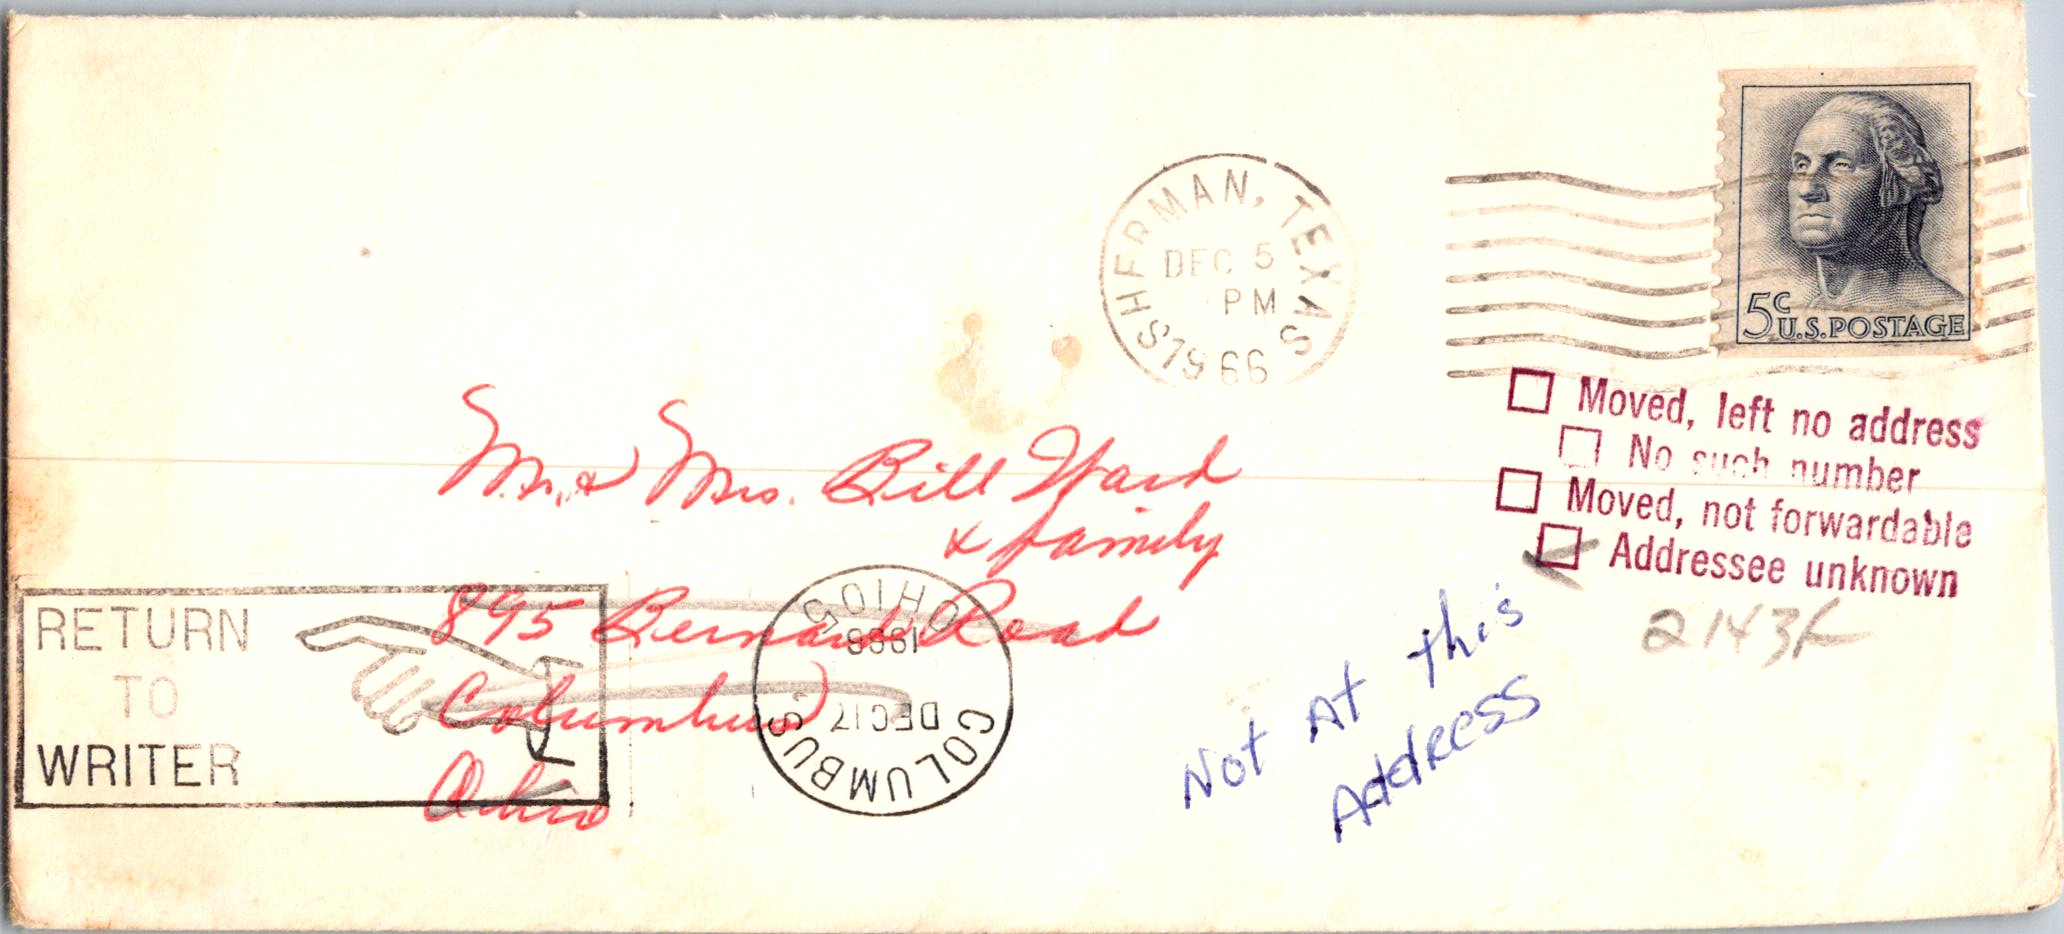 SHERMAN, TEXAS
DEC 5
PM
1966
5c U.S. POSTAGE
Moved, left no address
No such number
Moved, not forwardable
Addressee unknown
Mr. & Mrs. Bill Ward
& family
895 Bernard Road
Columbus
Ohio
RETURN
TO
WRITER
COLUMBUS
DEC 17
1966
OHIO
Not At this
Address